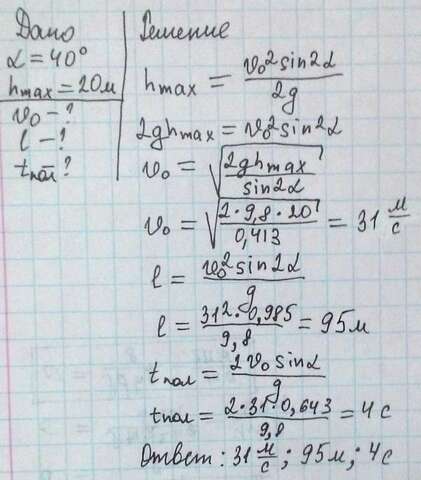 Дано
α = 40°
hmax = 20м
v₀ – ?
l – ?
tпол – ?
Решение
hmax = v₀² sin2α / 2g
2ghmax = v₀² sin2α
v₀ = √(2ghmax / sin2α)
v₀ = √(2·9,8·20 / 0,413) = 31 м/с
l = v₀² sin2α / g
l = 31²·0,985 / 9,8 = 95м
tпол = 2v₀ sinα / g
tпол = 2·31·0,643 / 9,8 = 4с
Ответ: 31 м/с; 95м; 4с